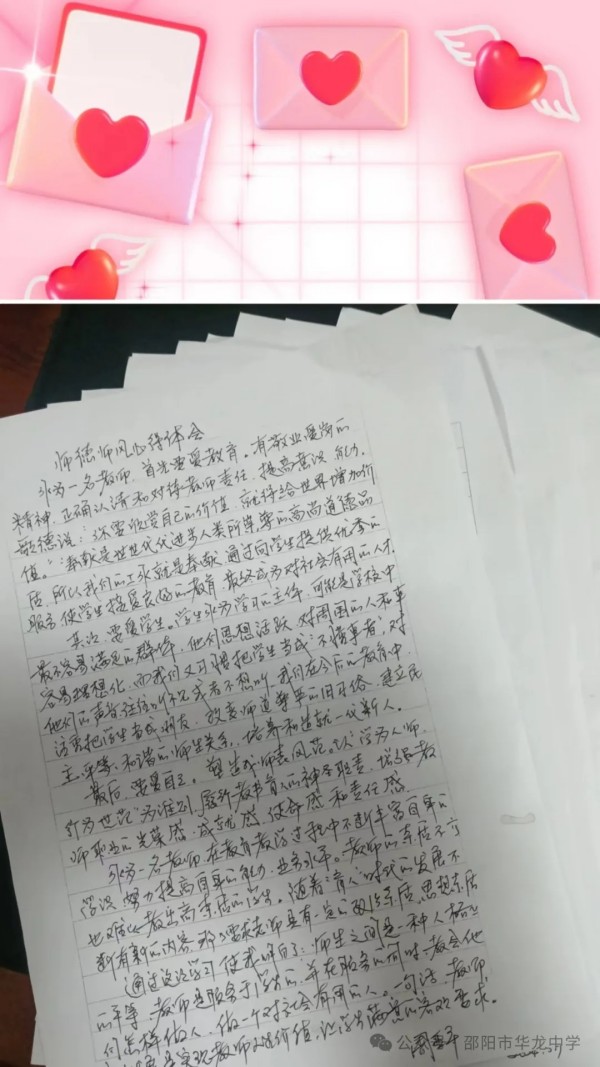 师德师风心得体会
作为一名教师,首先要爱教育。有敬业爱岗的
精神,正确认清和对待教师责任,提高意识能力。
歌德说:“你要欣赏自己的价值,就得给世界增加价
值。”奉献是世世代代进步人类所崇尚的高尚道德品
质,所以我们的工作就是奉献,通过向学生提供优秀的
服务,使学生接受良好的教育,最终成为对社会有用的人才。
其次,要爱学生。学生作为学习的主体,可能是学校中
最不容易满足的群体,他们思想活跃,对周围的人和事
容易理想化,而我们又习惯把学生当成“不懂事者”,对
他们的声音往往听不见或者不想听,我们在今后的教育中
应该把学生当成朋友,改变师道尊严的旧习俗,建立民
主、平等、和谐的师生关系,培养和造就一代新人。
最后,要爱自己。塑造师表风范。以“学为人师,
行为世范”为准则,履行教书育人的神圣职责,增强教
师职业的光荣感、成就感、使命感和责任感。
作为一名教师,在教育教学过程中不断丰富自身的
学识,努力提高自身的能力、业务水平。教师的素质不高
也难以教出高素质的学生。随着“育人”时代的发展不
断有新的内容,要求老师具有一定的政治素质、思想素质
通过这次学习使我明白了:师生之间是一种人格上
的平等,教师是服务于学生的,并在服务的同时教会他
们怎样做人,做一个对社会有用的人。一句话,教师
是实现教师的价值,让学生满意的客观要求。
公众号 邵阳市华龙中学